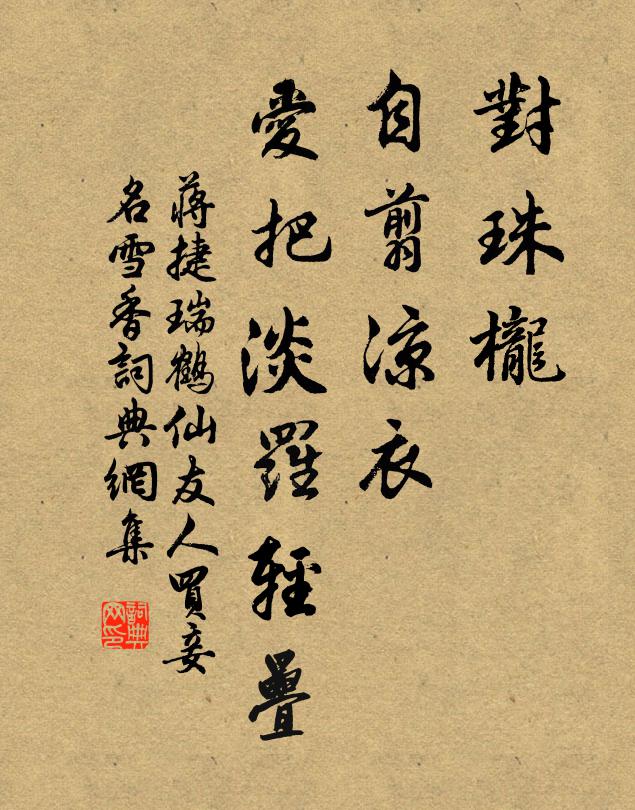 對珠櫳
自剪凉衣
愛把淡羅輕疊
蔣捷瑞鶴仙友人買妾
名雪香詞典網集
詞典
网印